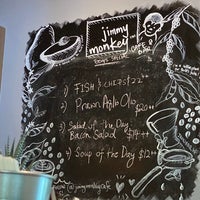 jimmy
monkey
CAFE & BAR
1) FISH & CHIPS $22++
2) Prawn Aglio Olio
$20++
3) Salad of the Day
Bacon Salad $14++
4) Soup of the Day $12++
@jimmymonkeycafe